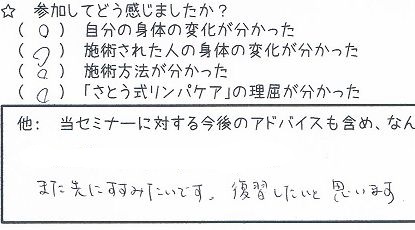 ☆ 参加してどう感じましたか？
( ○ ) 自分の身体の変化が分かった
( ○ ) 施術された人の身体の変化が分かった
( ○ ) 施術方法が分かった
( ○ ) 「さとう式リンパケア」の理屈が分かった
他: 当セミナーに対する今後のアドバイスも含め、なん
また先にすすみたいです。復習したいと思います